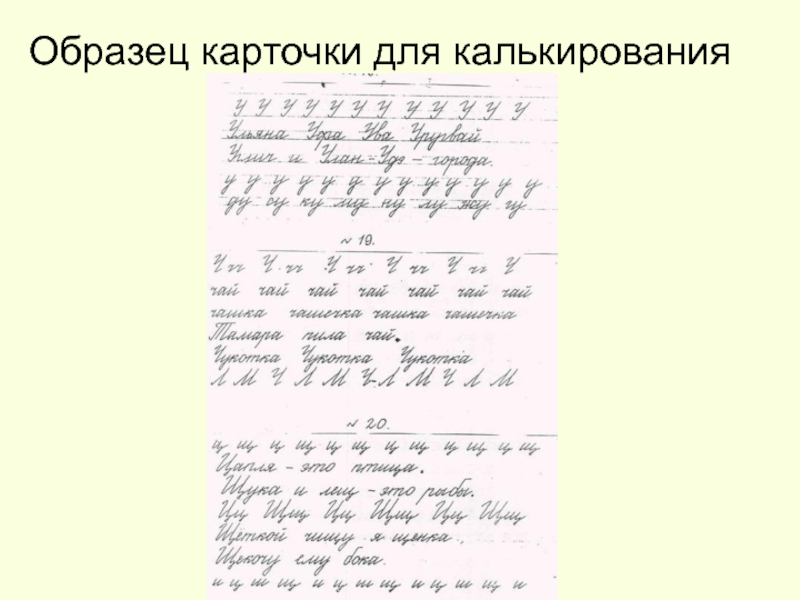 Образец карточки для калькирования
У У У У У У У У У У У У
Ульяна Уфа Ува Уругвай
Углич и Улан-Удэ – города.
у у у у у у у у у у у у у у
ду су ку му ну лу жу гу
№ 19.
Ч чч Ч чч Ч чч Ч чч Ч чч Ч
чай чай чай чай чай чай чай
чашка чашечка чашка чашечка
Тамара пила чай.
Чукотка Чукотка Чукотка
Л М Ч Л М Ч Л М Ч Л М
№ 20.
ц щ ц щ ц щ ц щ ц щ ц щ
Цапля – это птица.
Щука и лещ – это рыбы.
Цц Щщ Цц Щщ Цц Щщ
Щёткой чищу я щенка,
Щекочу ему бока.
и ц ш щ и ц ш щ и ц ш щ и